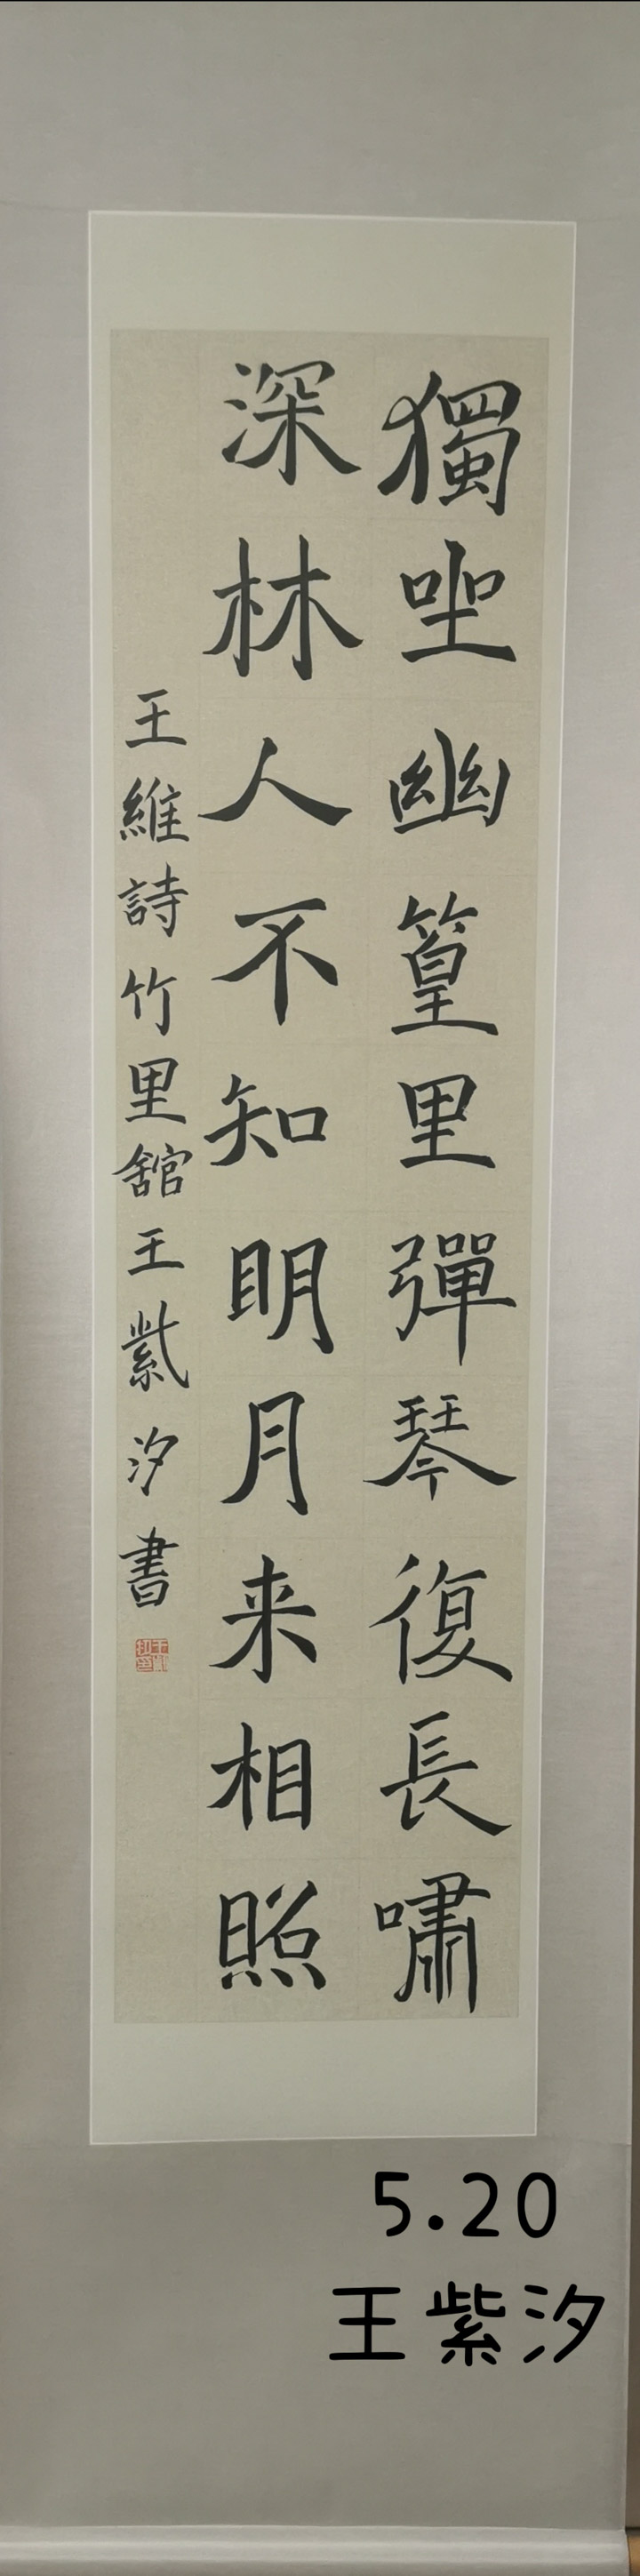 獨坐幽篁里彈琴復長嘯
深林人不知明月来相照
王維詩竹里舘王紫汐書
5.20
王紫汐